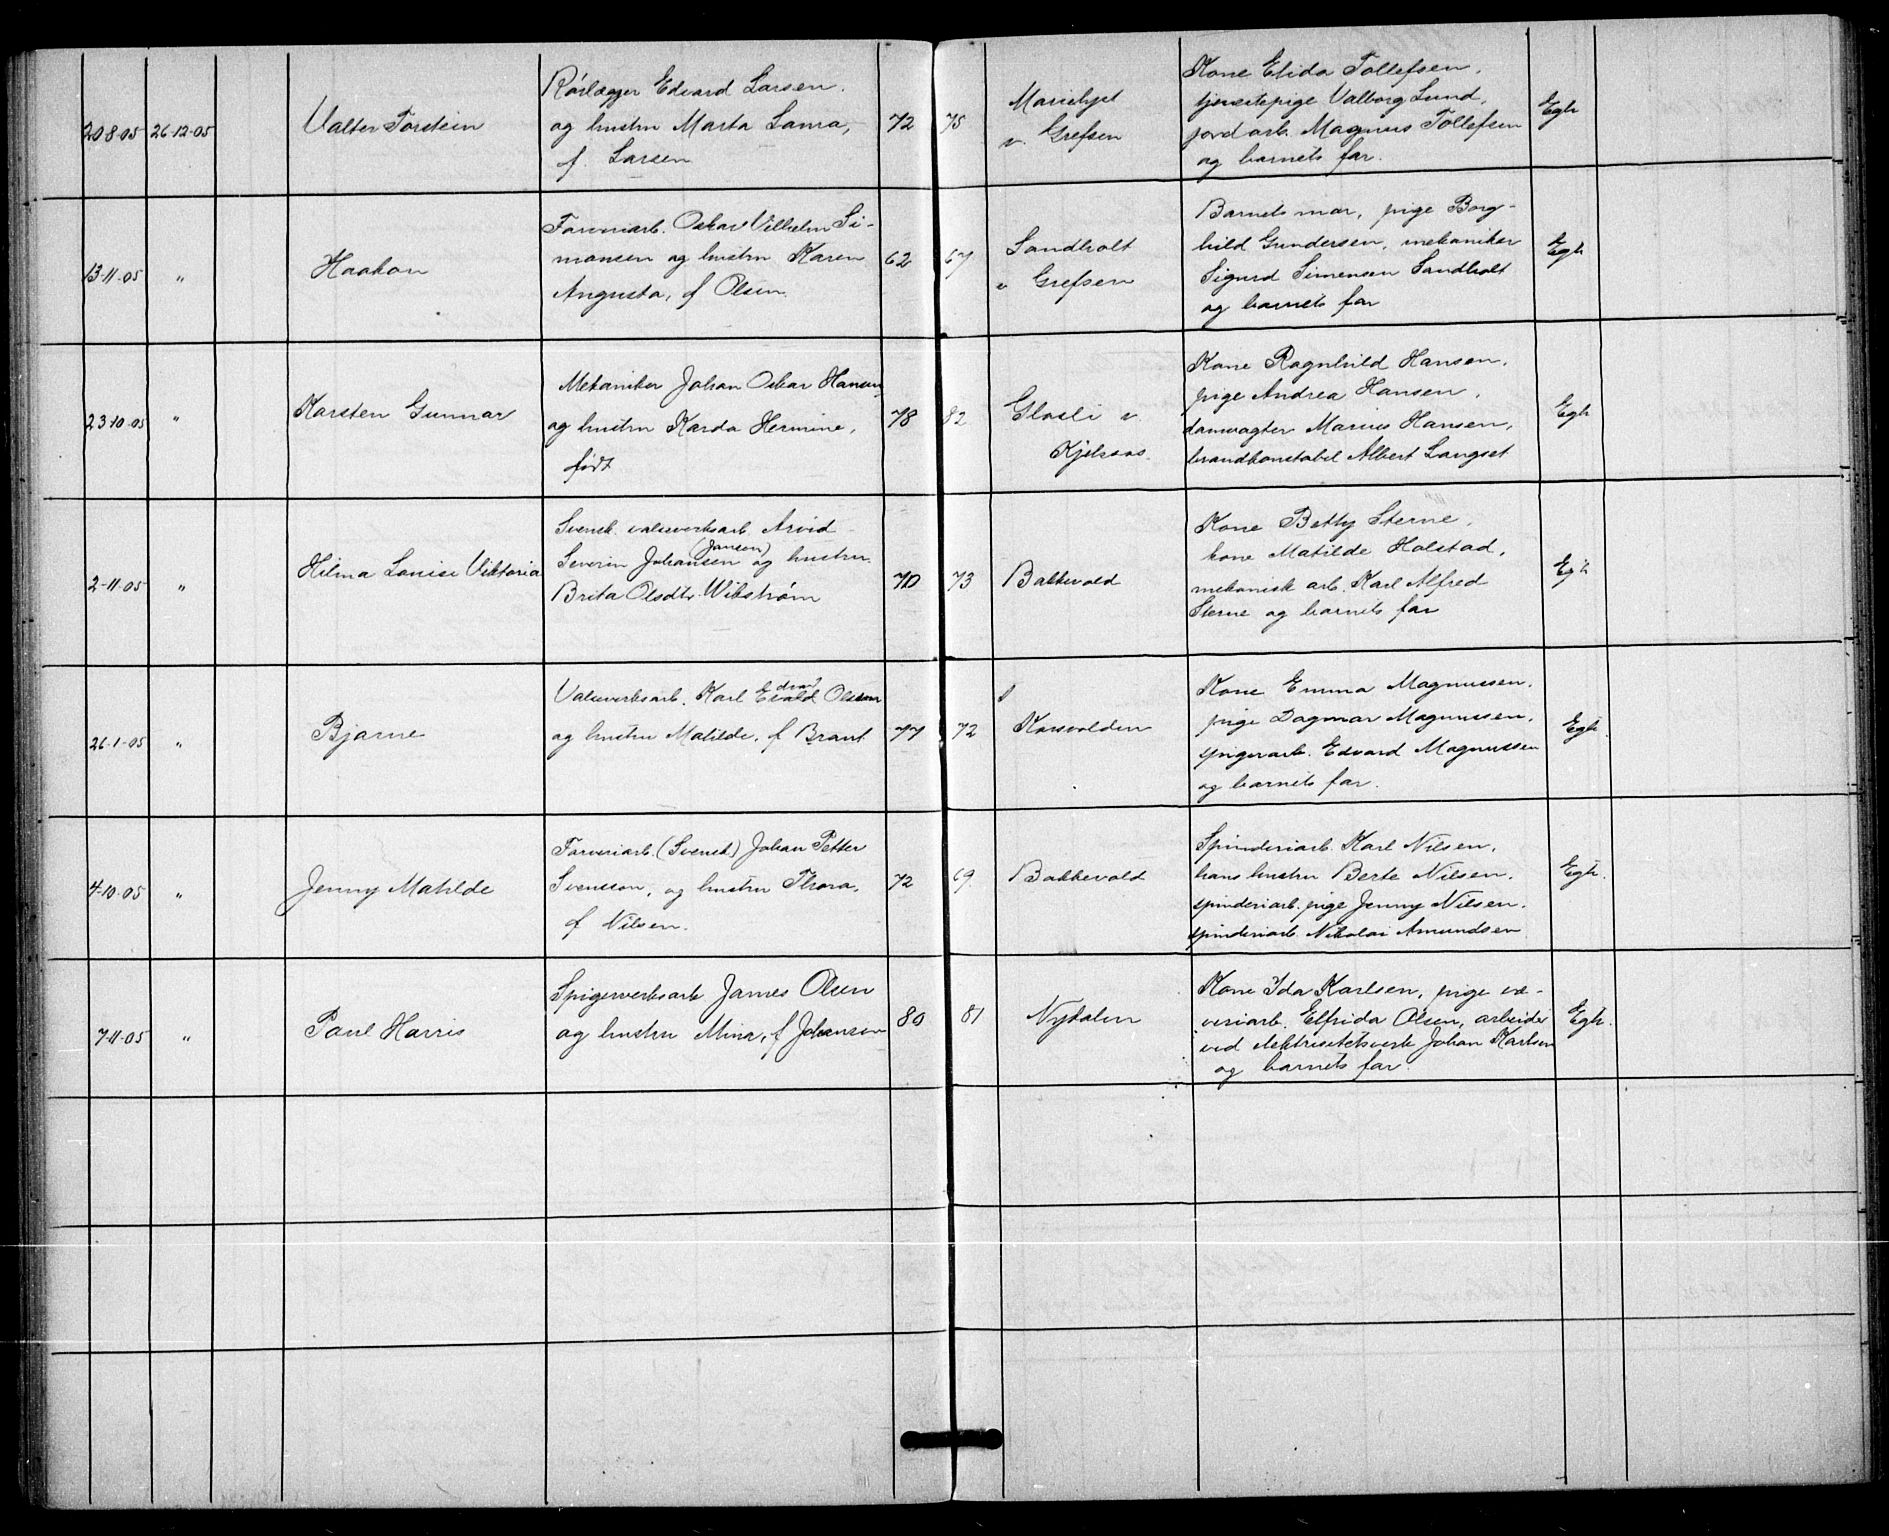 20-8-05 26-12-05 Valter Torstein
Rørlægger Edvard Larsen.
og hustru Marta Laura,
f. Larsen
72 75
Marielyst
v. Grefsen
Kone Elida Tollefsen,
tjenestepige Valborg Lund,
jordarb. Magnus Tollefsen
og barnets far.
Egh
13-11-05 " Haakon
Oskar Vilhelm Si-
monsen og hustru Karen
Augusta, f Olsen.
62 67
Sandholt
v Grefsen
Barnets mor, pige Borg-
hild Gundersen, mekaniker
Sigurd Simensen Sandholt
og barnets far
Egh
23-10-05 " Karsten Gunnar
Mekaniker Johan Oskar Hansen
og hustru Karda Hermine,
født
78 82
Glasli v.
Kjelsaas.
Kone Ragnhild Hansen,
pige Andrea Hansen,
damvagter Marius Hansen,
brandkonstabel Albert Langset
Egh
2-11-05 " Hilma Louise Viktoria
Svensk valseverksarb. Arvid
(Janson)
Severin Johansen og hustru
Brita Olsdtr. Wikstrøm
70 73
Bakkevold
Kone Betty Sterne,
kone Matilde Holstad,
mekanisk arb. Karl Alfred
Sterne og barnets far
Egh
26-1-05 " Bjarne
Valseverksarb. Karl Evald Olsen
og hustru Matilde, f Brant
77 72
Korsvolden
Kone Emma Magnussen,
pige Dagmar Magnussen,
spigerarb. Edvard Magnussen
og barnets far.
Egh.
4-10-05 " Jenny Matilde
Farveriarb. (Svensk) Johan Petter
Svensson, og hustru Thora,
f Nilsen.
72 69.
Bakkevold
Spinderiarb. Karl Nilsen,
hans hustru Berte Nilsen,
spinderiarb. pige Jenny Nilsen.
spinderiarb. Nikolai Amundsen
Egh.
7-11-05 " Paul Harris
Spigerverksarb James Olsen
og hustru Mina, f Johansen
80 81
Nydalen
Kone Ida Karlsen, pige væ-
veriarb. Elfrida Olsen, arbeider
ved elektrisitetsverk Johan Karlsen
og barnets far.
Egh.